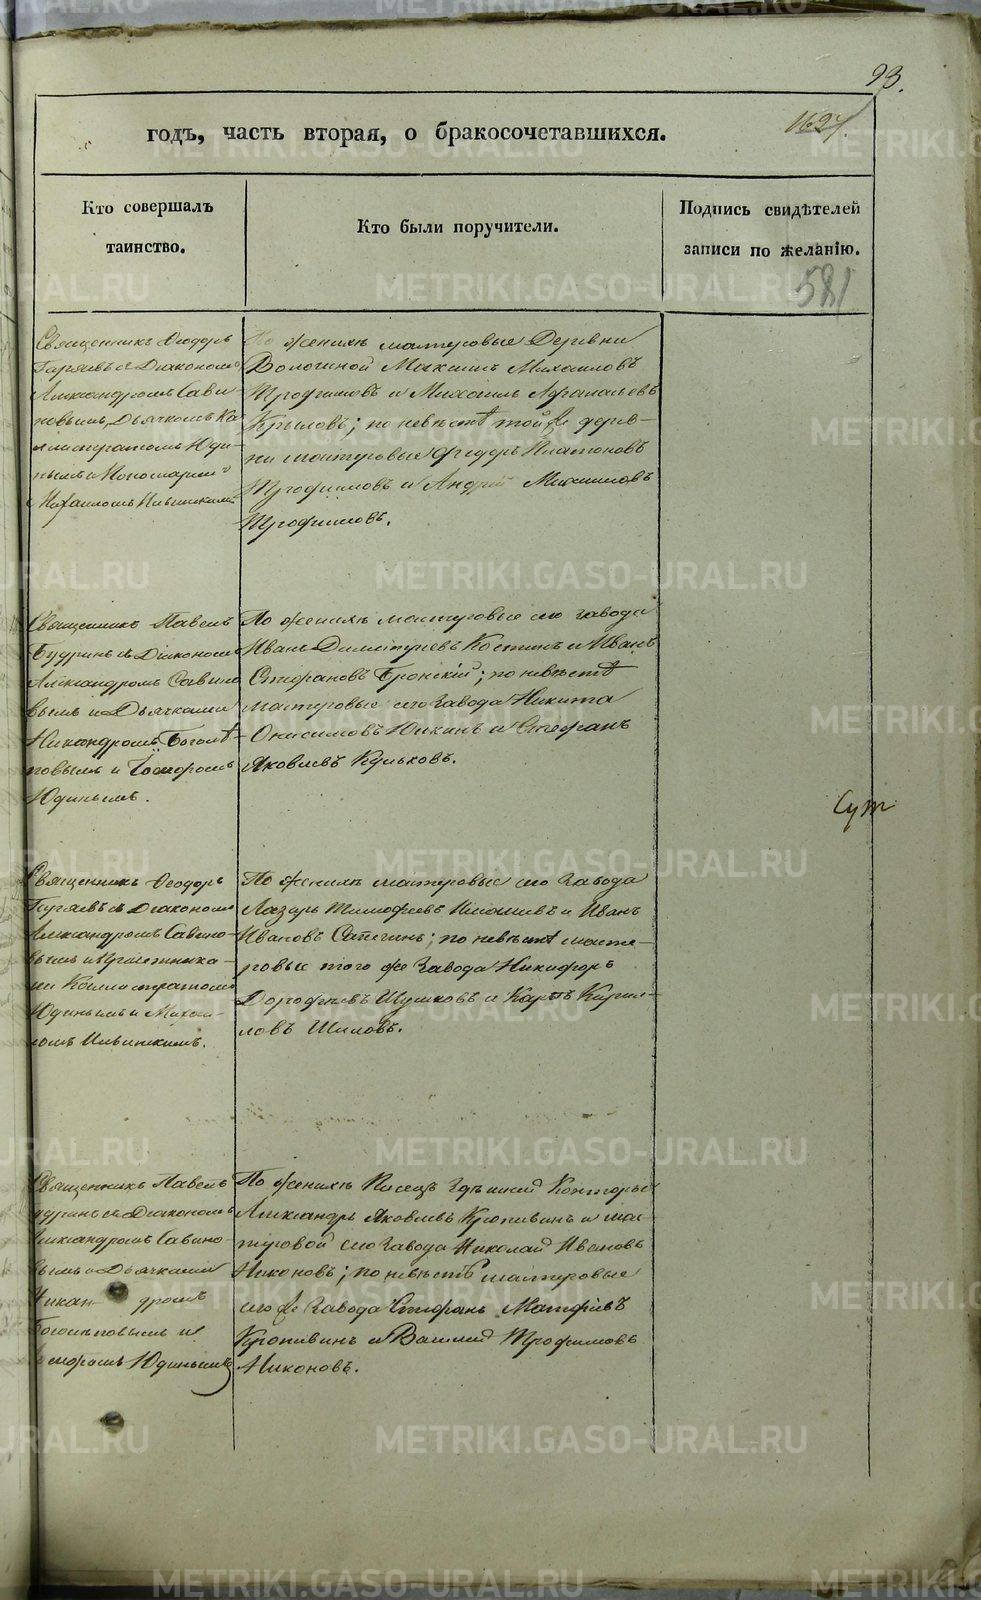 93.
годъ, часть вторая, о бракосочетавшихся.
Кто совершалъ
таинство.
Кто были поручители.
Подпись свидѣтелей
записи по желанію.
581
Священникъ Ѳеодоръ
съ Діакономъ
Александромъ Сави-
новымъ, Дьячкомъ Ка-
листратомъ Юди-
нымъ и Пономаремъ
Михаиломъ Ильинскимъ
По женихѣ мастеровые Деревни
Волочиной Максимъ Михаиловъ
Трофимовъ и Михаилъ Афанасьевъ
Крыловъ; по невѣстѣ той же дерев-
ни мастеровые Федоръ Платоновъ
Трофимовъ и Андрей Максимовъ
Трофимовъ.
Священникъ Павелъ
Будринъ съ Діакономъ
Александромъ Савино-
вымъ и Дьячками
Никандромъ Боголѣ-
повымъ и
Юдинымъ.
По женихѣ мастеровые сего завода
Иванъ Димитріевъ Костинъ и Иванъ
Стефановъ Бронскій; по невѣстѣ
мастеровые сего завода Никита
Онисимовъ Юкинъ и Стефанъ
Яковлевъ Куньковъ.
Сут
Священникъ Ѳеодоръ
съ Діакономъ
Александромъ Савино-
вымъ и Причетника-
ми Каллистратомъ
Юдинымъ и Михаи-
ломъ Ильинскимъ.
По женихѣ мастеровые сего завода
Лазарь Тимофеевъ и Иванъ
Ивановъ Сапегинъ; по невѣстѣ масте-
ровые того же завода Никифоръ
Дорофеевъ Шушковъ и Карпъ Кирил-
ловъ Шиловъ.
Священникъ Павелъ
Будринъ съ Діакономъ
Александромъ Савино-
вымъ и Дьячками
Никандромъ
Боголѣповымъ и
Юдинымъ
По женихѣ Писецъ здѣшней Конторы
Александръ Яковлевъ Кропивинъ и мас-
теровой сего завода Николай Ивановъ
Никоновъ; по невѣстѣ мастеровые
сего же завода Стефанъ Матфеевъ
Кропивинъ и Василий Трофимовъ
Никоновъ.
METRIKI.GASO-URAL.RU